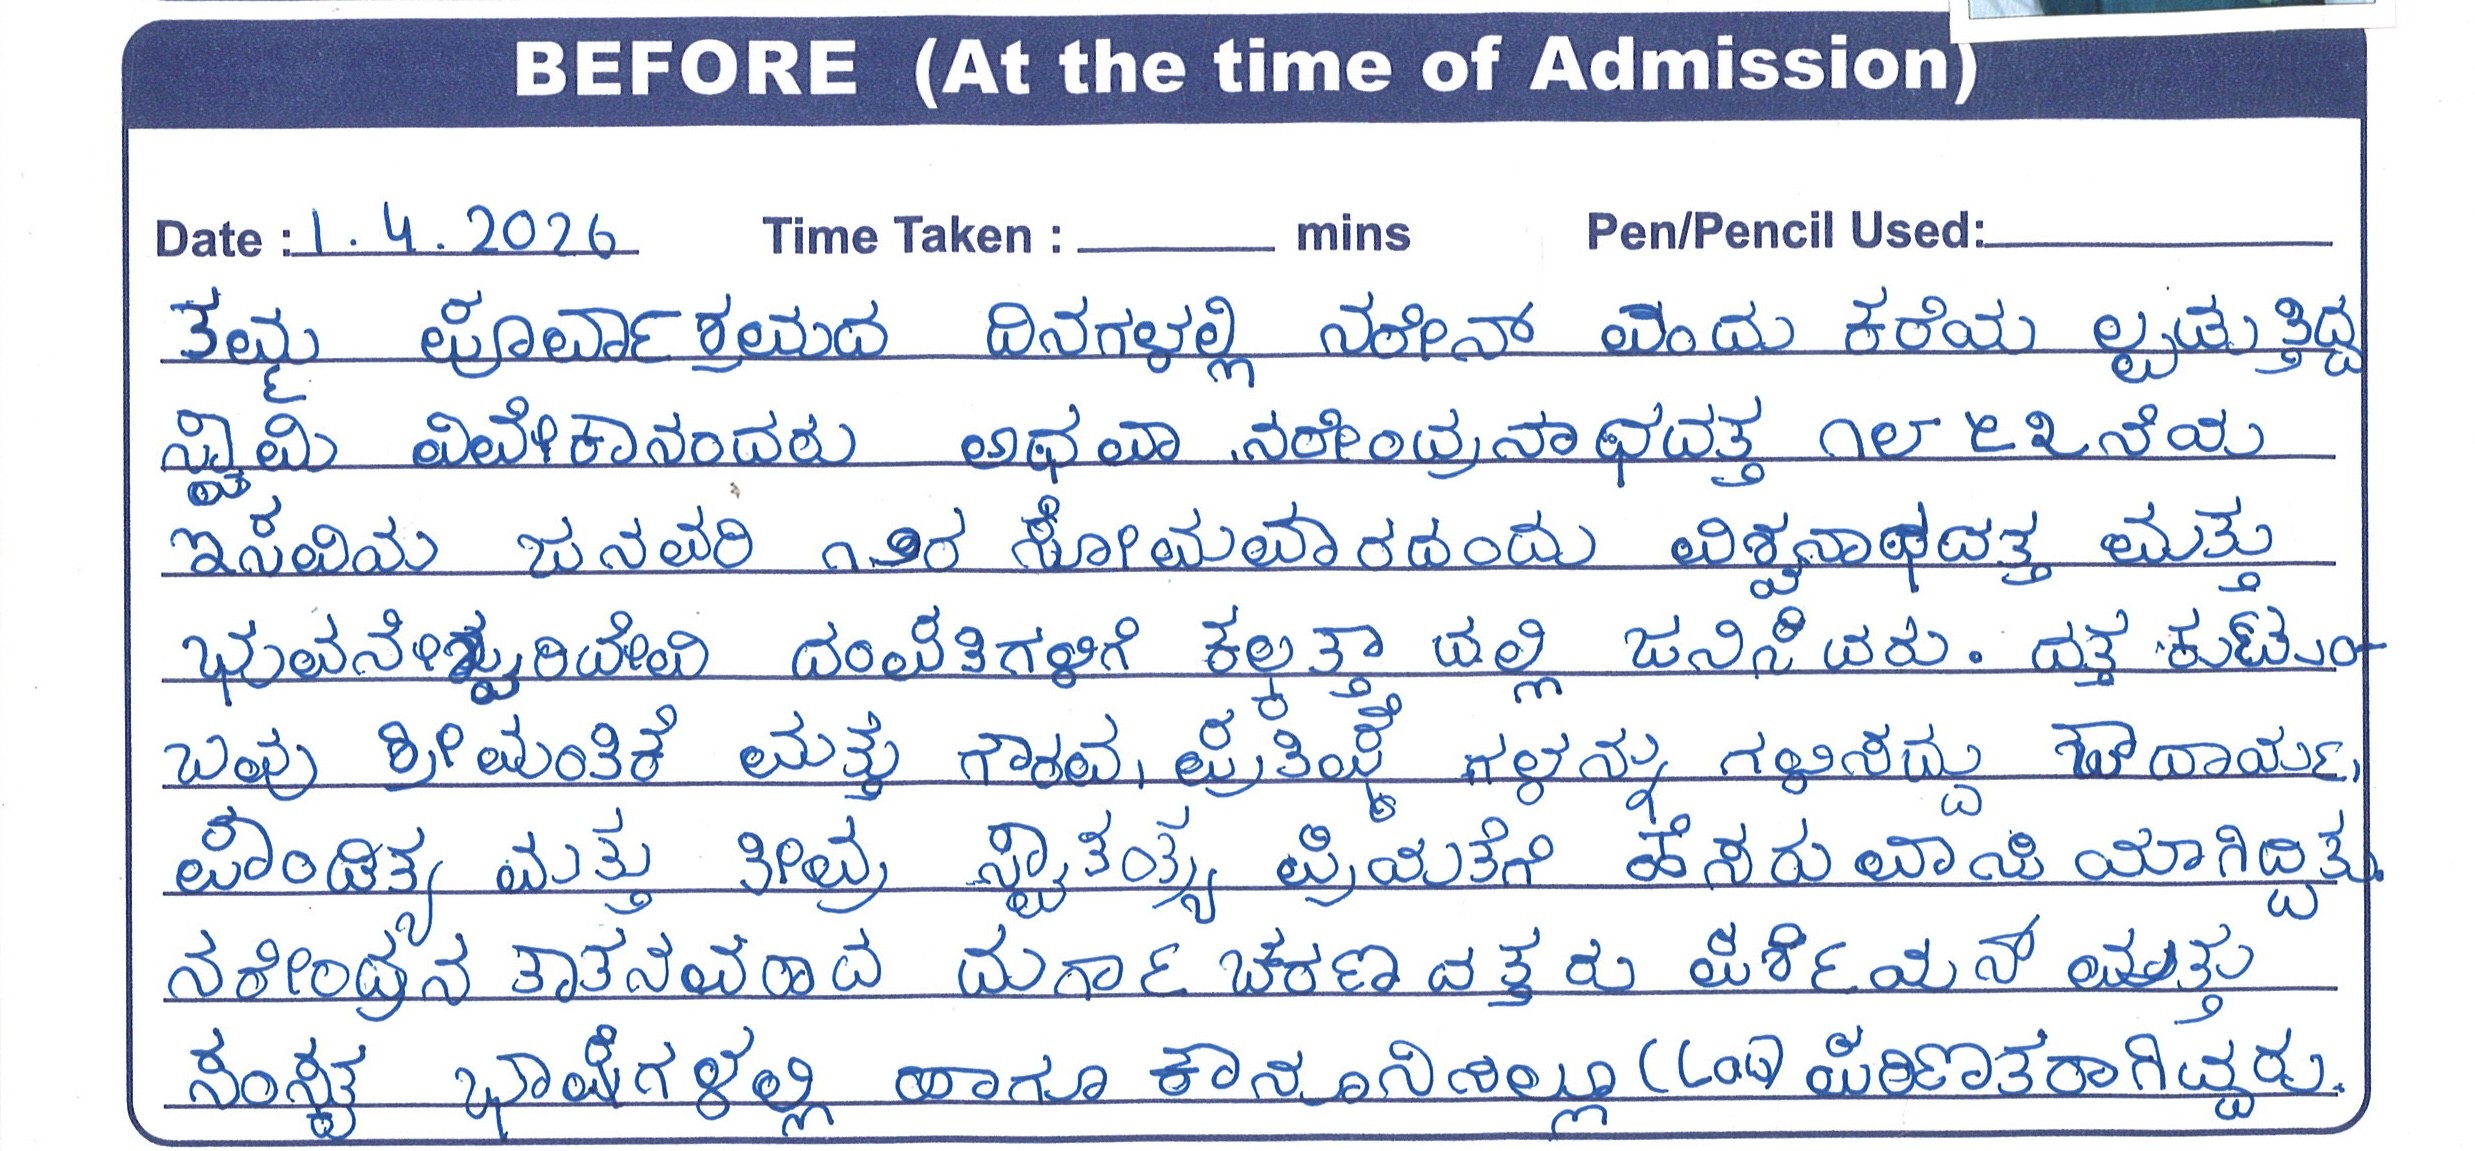 BEFORE (At the time of Admission)
Date : 1.4.2026 Time Taken : mins Pen/Pencil Used:
ತಮ್ಮ ಪೂರ್ವಾಶ್ರಮದ ದಿನಗಳಲ್ಲಿ ನರೇನ್ ಎಂದು ಕರೆಯ ಲ್ಪಡುತ್ತಿದ್ದ
ಸ್ವಾಮಿ ವಿವೇಕಾನಂದರು ಅಥವಾ ನರೇಂದ್ರನಾಥದತ್ತ ೧೮೬೩ನೆಯ
ಇಸವಿಯ ಜನವರಿ ೧೨ರ ಸೋಮವಾರದಂದು ವಿಶ್ವನಾಥದತ್ತ ಮತ್ತು
ಭುವನೇಶ್ವರಿದೇವಿ ದಂಪತಿಗಳಿಗೆ ಕಲ್ಕತ್ತಾ ದಲ್ಲಿ ಜನಿಸಿದರು. ದತ್ತ ಕುಟುಂ-
ಬವು ಶ್ರೀಮಂತಿಕೆ ಮತ್ತು ಗೌರವ, ಪ್ರತಿಷ್ಠೆ ಗಳನ್ನು ಗಳಿಸಿದ್ದು ಔದಾರ್ಯ,
ಪಾಂಡಿತ್ಯ ಮತ್ತು ತೀವ್ರ ಸ್ವಾತಂತ್ರ್ಯ ಪ್ರಿಯತೆಗೆ ಹೆಸರುವಾಸಿ ಯಾಗಿದ್ದಿತು.
ನರೇಂದ್ರನ ತಾತನವರಾದ ದುರ್ಗಾ ಚರಣ ದತ್ತರು ಪರ್ಶಿಯನ್ ಮತ್ತು
ಸಂಸ್ಕೃತ ಭಾಷೆಗಳಲ್ಲಿ ಹಾಗೂ ಕಾನೂನಿನಲ್ಲೂ (Law) ಪರಿಣತರಾಗಿದ್ದರು.